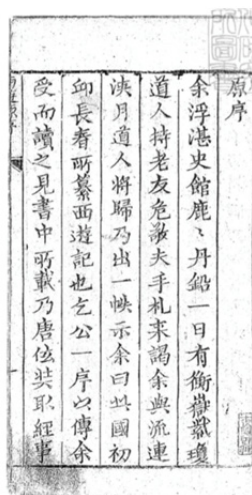 原序
余浮湛史館鹿〻丹鉛一日有衡嶽紫瓊
道人持老友危敩夫手札来謁余與流連
浹月道人將歸乃出一帙示余曰此國初
邱長春所纂西遊記也乞公一序以傳余
受而讀之見書中所載乃唐玄奘取經事